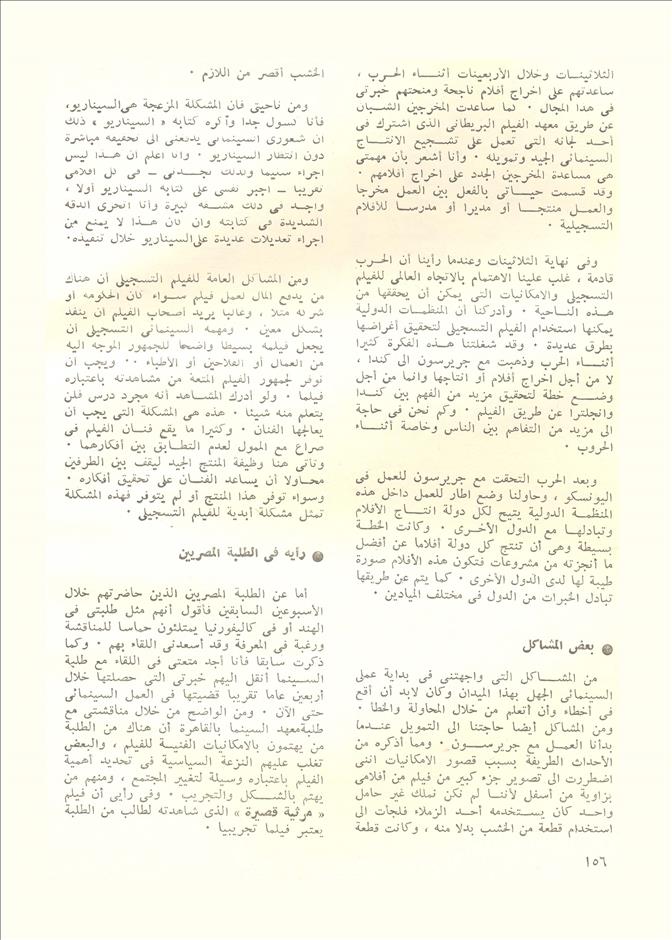 الثلاثينات وخلال الأربعينات أثناء الحرب ،
ساعدتهم على اخراج أفلام ناجحة ومنحتهم خبرتى
فى هذا المجال . كما ساعدت المخرجين الشبان
عن طريق معهد الفيلم البريطانى الذى اشترك فى
أحد لجانه التى تعمل على تشجيع الانتاج
السينمائى الجيد وتمويله . وأنا أشعر بأن مهمتى
هى مساعدة المخرجين الجدد على اخراج أفلامهم .
وقد قسمت حياتى بالفعل بين العمل مخرجا
والعمل منتجا أو مديرا أو مدرسا للأفلام
التسجيلية .
وفى نهاية الثلاثينات وعندما رأينا أن الحرب
قادمة ، غلب علينا الاهتمام بالاتجاه العالمى للفيلم
التسجيلى والامكانيات التى يمكن أن يحققها من
هذه الناحية . وأدركنا أن المنظمات الدولية
يمكنها استخدام الفيلم التسجيلى لتحقيق أغراضها
بطرق عديدة . وقد شغلتنا هذه الفكرة كثيرا
أثناء الحرب وذهبت مع جريرسون الى كندا ،
لا من أجل اخراج أفلام أو انتاجها وانما من أجل
وضع خطة لتحقيق مزيد من الفهم بين كندا
وانجلترا عن طريق الفيلم . وكم نحن فى حاجة
الى مزيد من التفاهم بين الناس وخاصة أثناء
الحروب .
وبعد الحرب التحقت مع جريرسون للعمل فى
اليونسكو ، وحاولنا وضع اطار للعمل داخل هذه
المنظمة الدولية يتيح لكل دولة انتاج الأفلام
وتبادلها مع الدول الأخرى . وكانت الخطة
بسيطة وهى أن تنتج كل دولة أفلاما عن أفضل
ما أنجزته من مشروعات فتكون هذه الأفلام صورة
طيبة لها لدى الدول الأخرى . كما يتم عن طريقها
تبادل الخبرات من الدول فى مختلف الميادين .
● بعض المشاكل
من المشاكل التى واجهتنى فى بداية عملى
السينمائى الجهل بهذا الميدان وكان لابد أن أقع
فى أخطاء وأن أتعلم من خلال المحاولة والخطأ .
ومن المشاكل أيضا حاجتنا الى التمويل عندما
بدأنا العمل مع جريرسون . ومما أذكره من
الأحداث الطريفة بسبب قصور الامكانيات اننى
اضطررت الى تصوير جزء كبير من فيلم من أفلامى
بزاوية من أسفل لأننا لم نكن نملك غير حامل
واحد كان يستخدمه أحد الزملاء فلجأت الى
استخدام قطعة من الخشب بدلا منه ، وكانت قطعة
الخشب أقصر من اللازم .
ومن ناحيتى فان المشكلة المزعجة هى السيناريو،
فأنا كسول جدا وأكره كتابة « السيناريو » ذلك
ان شعورى السينمائى يدفعنى الى تحقيقه مباشرة
دون انتظار السيناريو . وأنا أعلم ان هذا ليس
اجراء سليما ولذلك تجدنى - فى كل أفلامى
تقريبا - أجبر نفسى على كتابة السيناريو أولا ،
وأجد فى ذلك مشقة كبيرة وأنا أتحرى الدقة
الشديدة فى كتابته وان كان هذا لا يمنع من
اجراء تعديلات عديدة على السيناريو خلال تنفيذه.
ومن المشاكل العامة للفيلم التسجيلى أن هناك
من يدفع المال لعمل فيلم سواء كان الحكومة أو
شركة مثلا ، وغالبا يريد أصحاب الفيلم أن ينفذ
بشكل معين . ومهمة السينمائى التسجيلى أن
يجعل فيلمه بسيطا واضحا للجمهور الموجه اليه
من العمال أو الفلاحين أو الأطباء . . ويجب أن
نوفر لجمهور الفيلم المتعة من مشاهدته باعتباره
فيلما . ولو أدرك المشاهد أنه مجرد درس فلن
يتعلم منه شيئا . هذه هى المشكلة التى يجب أن
يعالجها الفنان . وكثيرا ما يقع فنان الفيلم فى
صراع مع الممول لعدم التطابق بين أفكارهما .
وتأتى هنا وظيفة المنتج الجيد ليقف بين الطرفين
محاولا أن يساعد الفنان على تحقيق أفكاره .
وسواء توفر هذا المنتج أو لم يتوفر فهذه المشكلة
تمثل مشكلة أبدية للفيلم التسجيلى .
● رأيه فى الطلبة المصريين
أما عن الطلبة المصريين الذين حاضرتهم خلال
الأسبوعين السابقين فأقول أنهم مثل طلبتى فى
الهند أو فى كاليفورنيا يمتلئون حماسا للمناقشة
ورغبة فى المعرفة وقد أسعدنى اللقاء بهم . وكما
ذكرت سابقا فأنا أجد متعتى فى اللقاء مع طلبة
السينما أنقل اليهم خبرتى التى حصلتها خلال
أربعين عاما تقريبا قضيتها فى العمل السينمائى
حتى الآن . ومن الواضح من خلال مناقشتى مع
طلبة معهد السينما بالقاهرة أن هناك من الطلبة
من يهتمون بالامكانيات الفنية للفيلم ، والبعض
تغلب عليهم النزعة السياسية فى تحديد أهمية
الفيلم باعتباره وسيلة لتغيير المجتمع ، ومنهم من
يهتم بالشكل والتجريب . وفى رأيى أن فيلم
« مرثية قصيرة » الذى شاهدته لطالب من الطلبة
يعتبر فيلما تجريبيا .
١٥٦